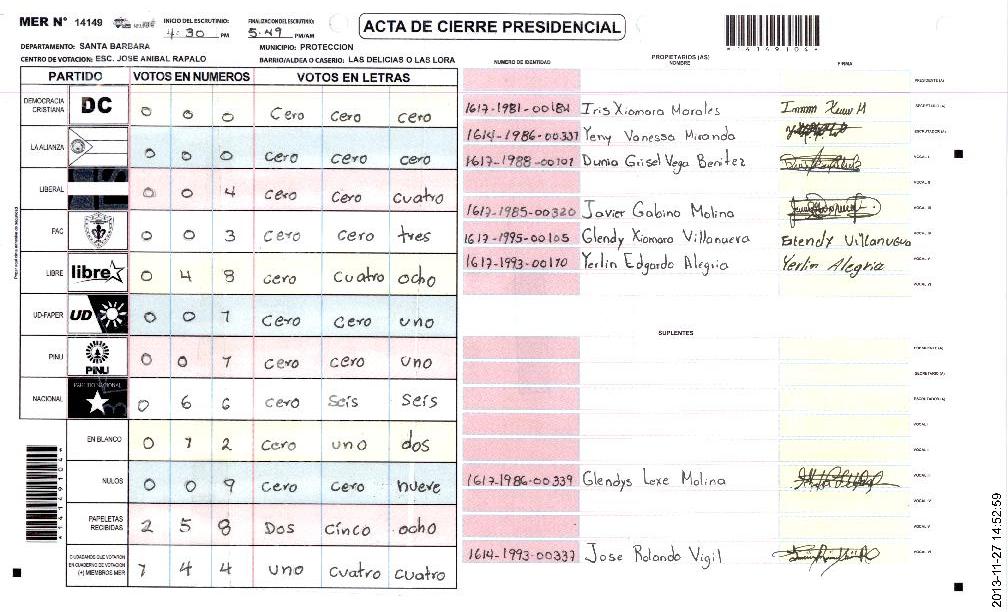 MER N° 14149
INICIO DEL ESCRUTINIO: 4:30 PM
FINALIZACION DEL ESCRUTINIO: 5:49 PM/AM
ACTA DE CIERRE PRESIDENCIAL
DEPARTAMENTO: SANTA BARBARA MUNICIPIO: PROTECCION
CENTRO DE VOTACION: ESC. JOSE ANIBAL RAPALO BARRIO/ALDEA O CASERIO: LAS DELICIAS O LAS LORA
PARTIDO VOTOS EN NUMEROS VOTOS EN LETRAS
DEMOCRACIA CRISTIANA DC 0 0 0 Cero cero cero
LA ALIANZA 0 0 0 cero cero cero
LIBERAL 0 0 4 cero cero cuatro
PAC 0 0 3 cero cero tres
LIBRE libre 0 4 8 cero cuatro ocho
UD-FAPER UD 0 0 1 cero cero uno
PINU PiNU 0 0 1 cero cero uno
NACIONAL PARTIDO NACIONAL 0 6 6 cero seis seis
EN BLANCO 0 1 2 cero uno dos
NULOS 0 0 9 cero cero nueve
PAPELETAS RECIBIDAS 2 5 8 Dos cinco ocho
CIUDADANOS QUE VOTARON EN CUADERNO DE VOTACION (+) MIEMBROS MER 1 4 4 uno cuatro cuatro
*14149104*
NUMERO DE IDENTIDAD PROPIETARIOS (AS) NOMBRE FIRMA
PRESIDENTE (A)
1617-1981-00184 Iris Xiomara Morales SECRETARIO (A)
1614-1986-00337 Yeny Vanessa Miranda ESCRUTADOR (A)
1617-1988-00101 Dunia Grisel Vega Benitez VOCAL I
VOCAL II
1617-1985-00320 Javier Gabino Molina VOCAL III
1617-1995-00105 Glendy Xiomara Villanueva Glendy Villanueva
1617-1993-00170 Yerlin Edgardo Alegria Yerlin Alegria VOCAL V
VOCAL VI
SUPLENTES
PRESIDENTE (A)
SECRETARIO (A)
ESCRUTADOR (A)
VOCAL I
1617-1986-00339 Glendys Lexe Molina
VOCAL IV
VOCAL V
1614-1993-00337 Jose Rolando Vigil VOCAL VI
2013-11-27 14:52:59